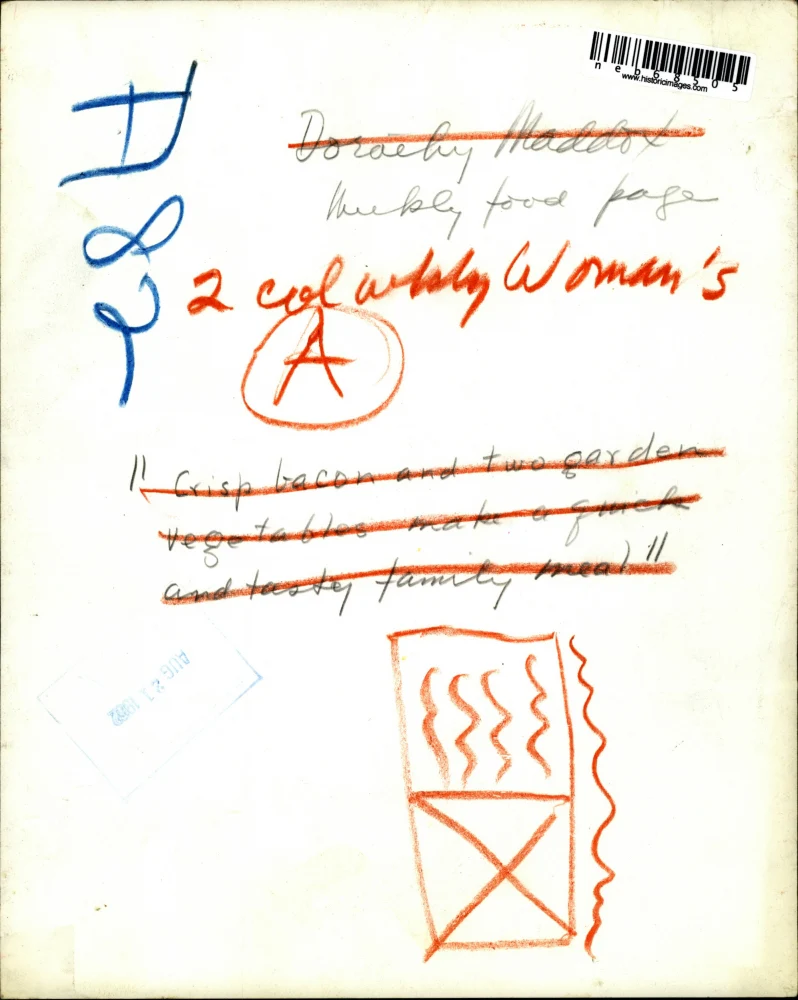 neb68505
www.historicimages.com
Dorothy Maddox
Weekly food page
2 col wkly Woman's
A
A82
" Crisp bacon and two garden
vegetables make a quick
and tasty family meal "
AUG 21